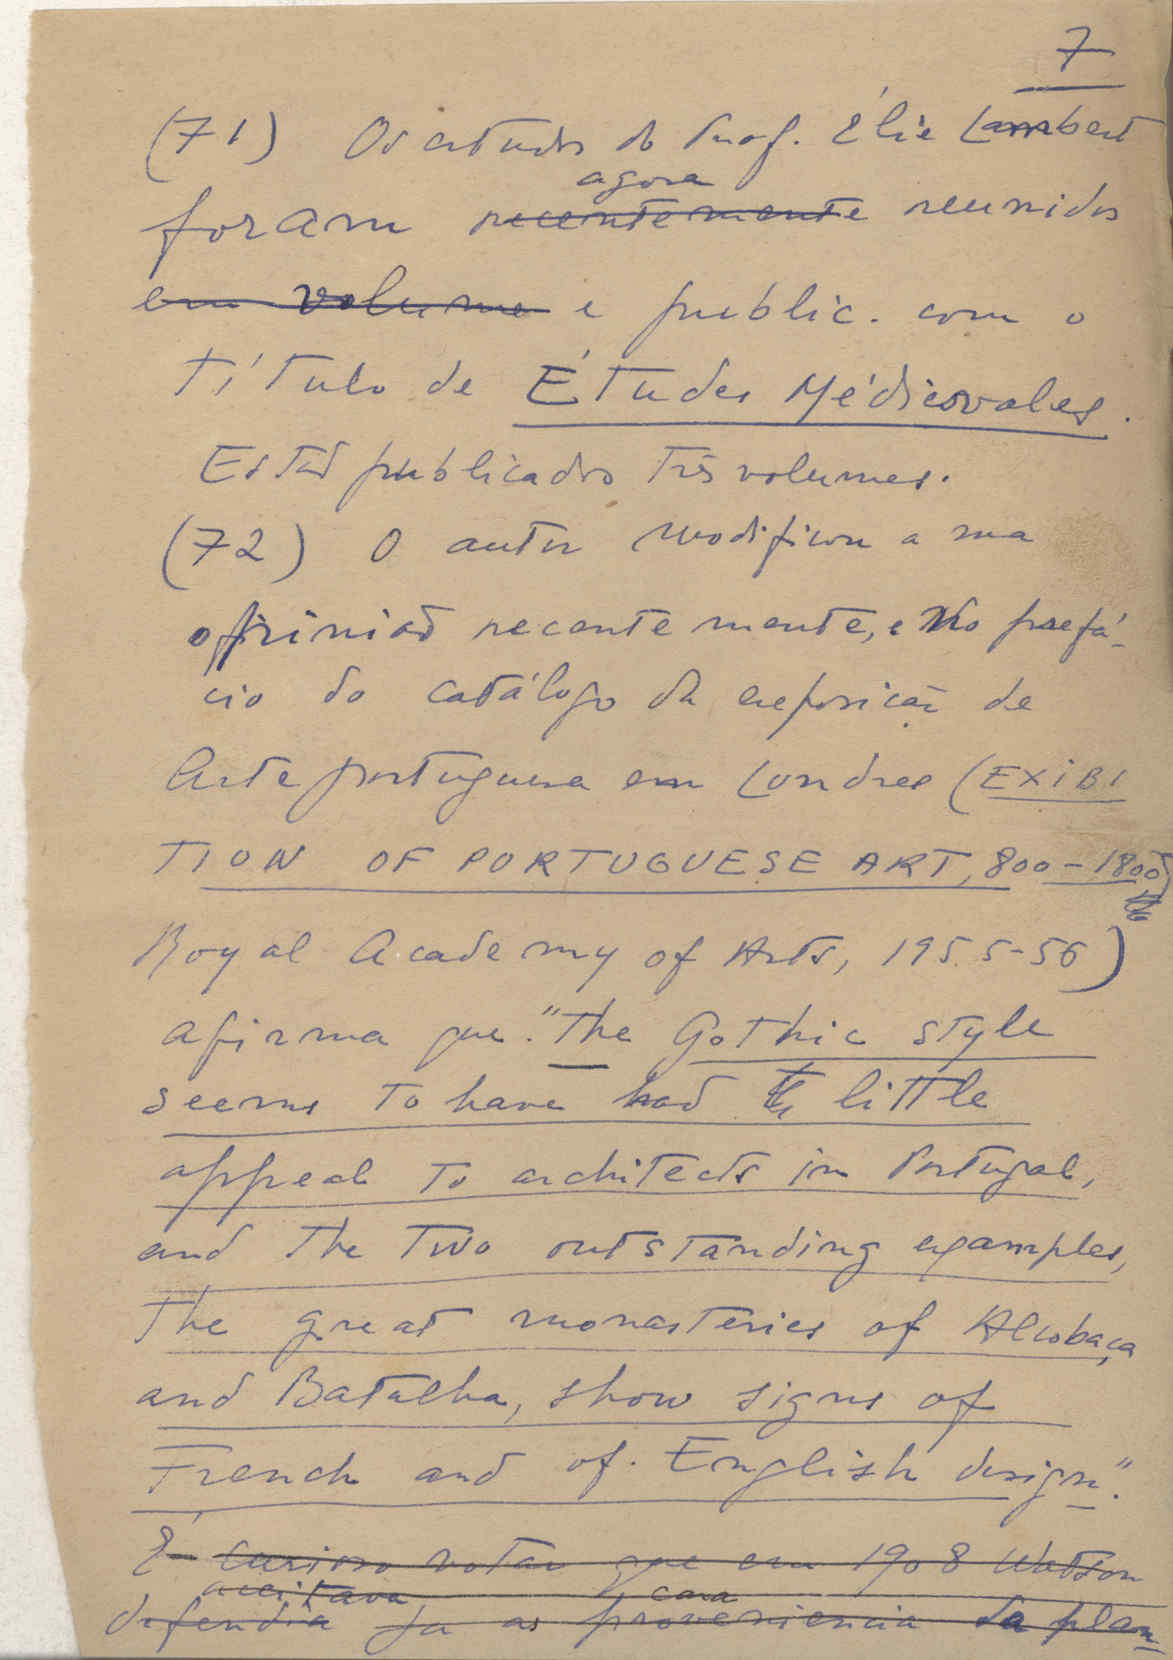 7
(71) Os estudos do Prof. Élie Lambert
agora
foram recentemente reunidos
em volume e public. com o
título de Études Médiévales.
Estão publicados três volumes.
(72) O autor modificou a sua
opinião recentemente, e No prefá-
cio do catálogo da exposição de
Arte portuguesa em Londres (EXIBI
TION OF PORTUGUESE ART, 800-1800
Royal Academy of Arts, 1955-56)
afirma que "the Gothic style
seems to have had little
appeal to architects in Portugal,
and the two outstanding examples,
the great monasteries of Alcobaça
and Batalha, show signs of
French and of English design".
É curioso notar que em 1908 Watson
aceitava essa
defendia já as proveniencia da plan-